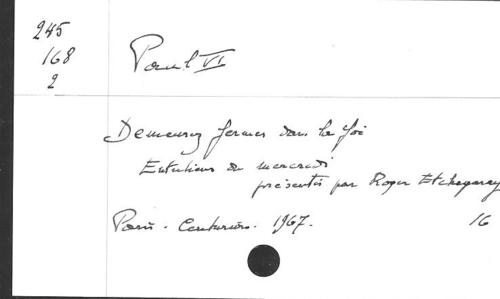 245
168
2
Paul VI
Demeurez fermes dans la foi
Entretiens du mercredi
présentés par Roger Etchegaray
Paris - Centurion. 1967.
16